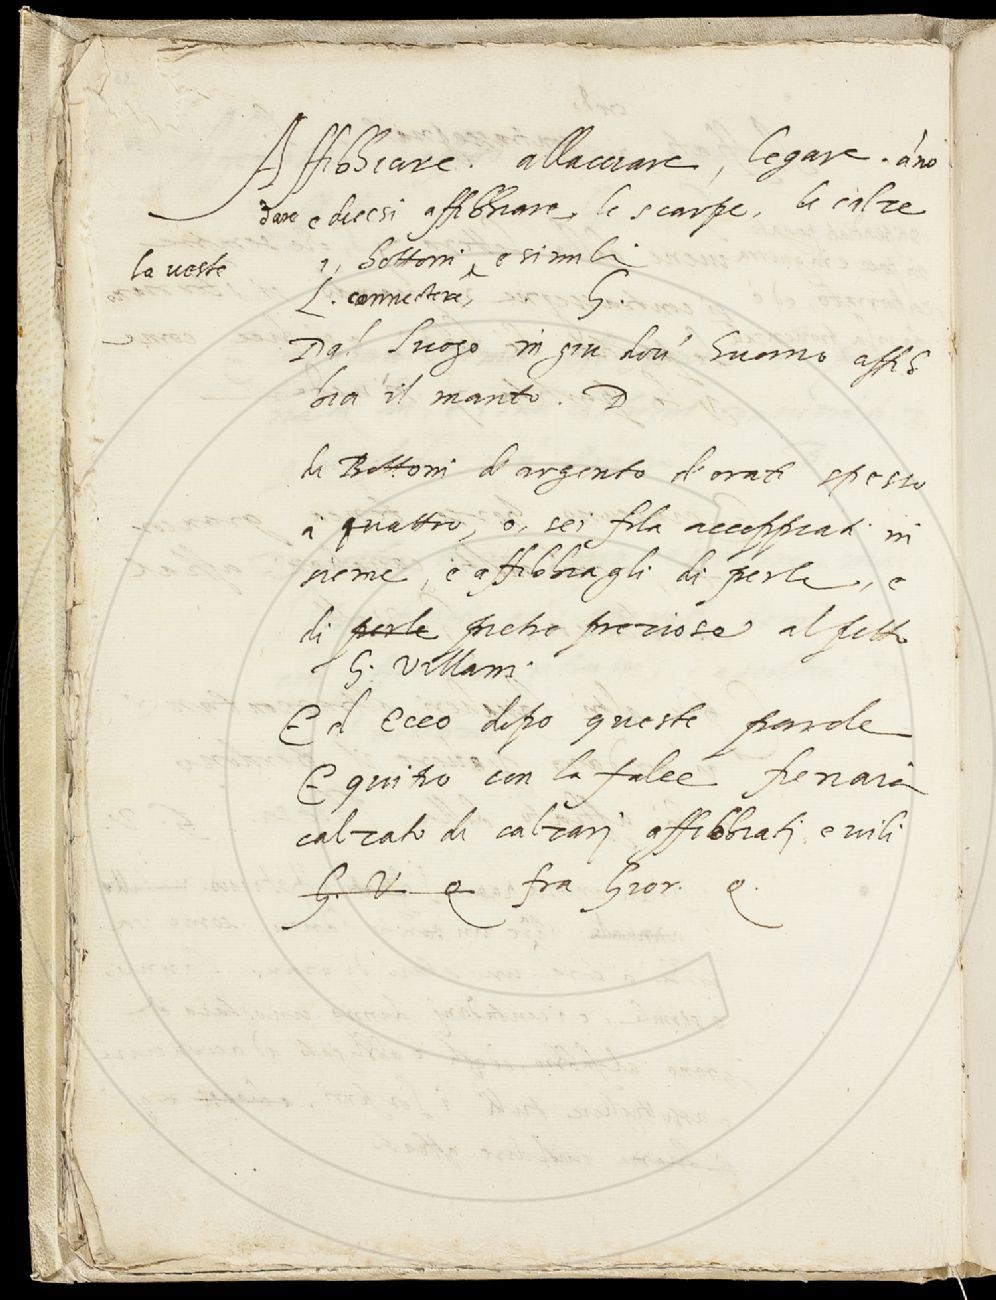 Affibbiare. allacciare, legare. ano
dare e dicesi affibbiare, le scarpe, le calze
la veste i, bottoni e simili
L. connectere, G.
Dal luogo in giu dou' huomo affib
bia il manto. D
di Bottoni d'argento d'orati spesso
a quattro, o, sei fila accoppiati in
sieme, e affibbiagli di perle, e
di perle pietre preziose al petto
G. Villani
Ed Ecco dipo queste parole
E quiuo con la falce fienaia
calzato di calzari affibbiati, e uili
G. V. e fra Gior. e.